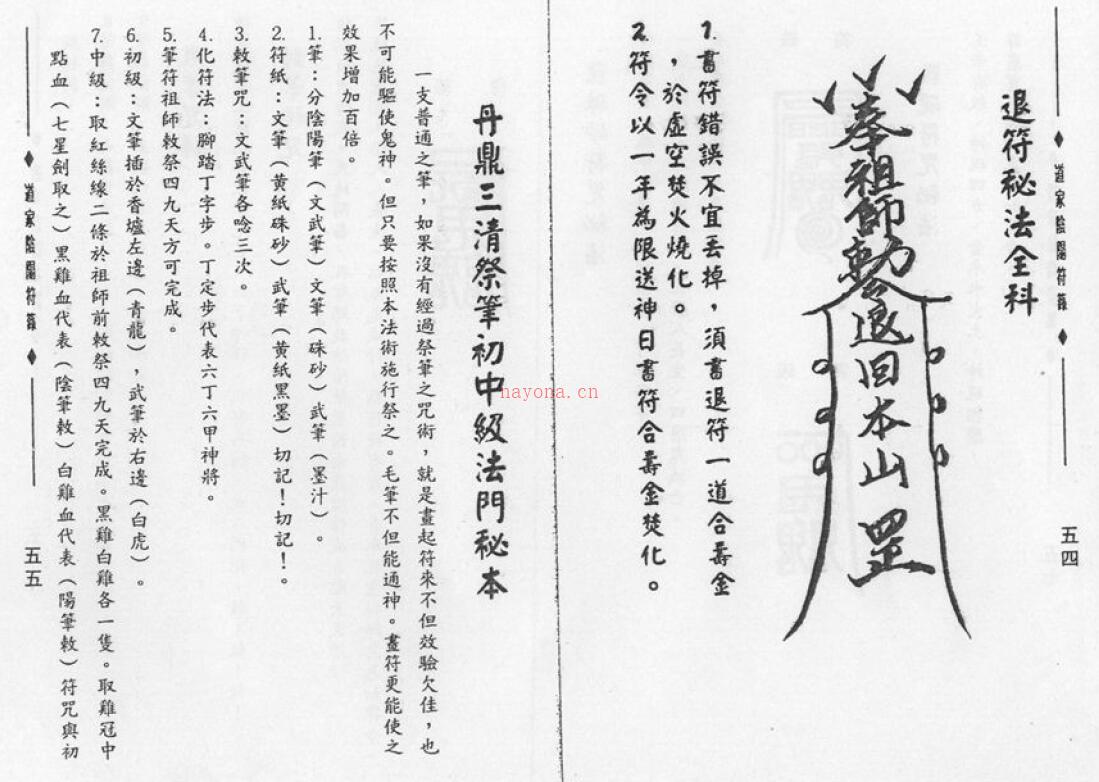 退符秘法全科
奉祖師勅退回本山罡
1.書符錯誤不宜丟掉,須書退符一道合壽金
,於虛空焚火燒化。
2.符令以一年為限送神日書符合壽金焚化。
道家陰陽符籙
五四
丹鼎三清祭筆初中級法門秘本
一支普通之筆,如果沒有經過祭筆之咒術,就是畫起符來不但效驗欠佳,也
不可能驅使鬼神。但只要按照本法術施行祭之。毛筆不但能通神。畫符更能使之
效果增加百倍。
1.筆:分陰陽筆(文武筆)文筆(硃砂)武筆(墨汁)。
2.符紙:文筆(黃紙硃砂)武筆(黃紙黑墨)切記!切記!。
3.敕筆咒:文武筆各唸三次。
4.化符法:腳踏丁字步。丁定步代表六丁六甲神將。
5.筆符祖師敕祭四九天方可完成。
6.初級:文筆插於香爐左邊(青龍),武筆於右邊(白虎)。
7.中級:取紅絲線二條於祖師前敕祭四九天完成。黑雞白雞各一隻。取雞冠中
點血(七星劍取之)黑雞血代表(陰筆敕)白雞血代表(陽筆敕)符咒與初
道家陰陽符籙
五五
hayona.cn